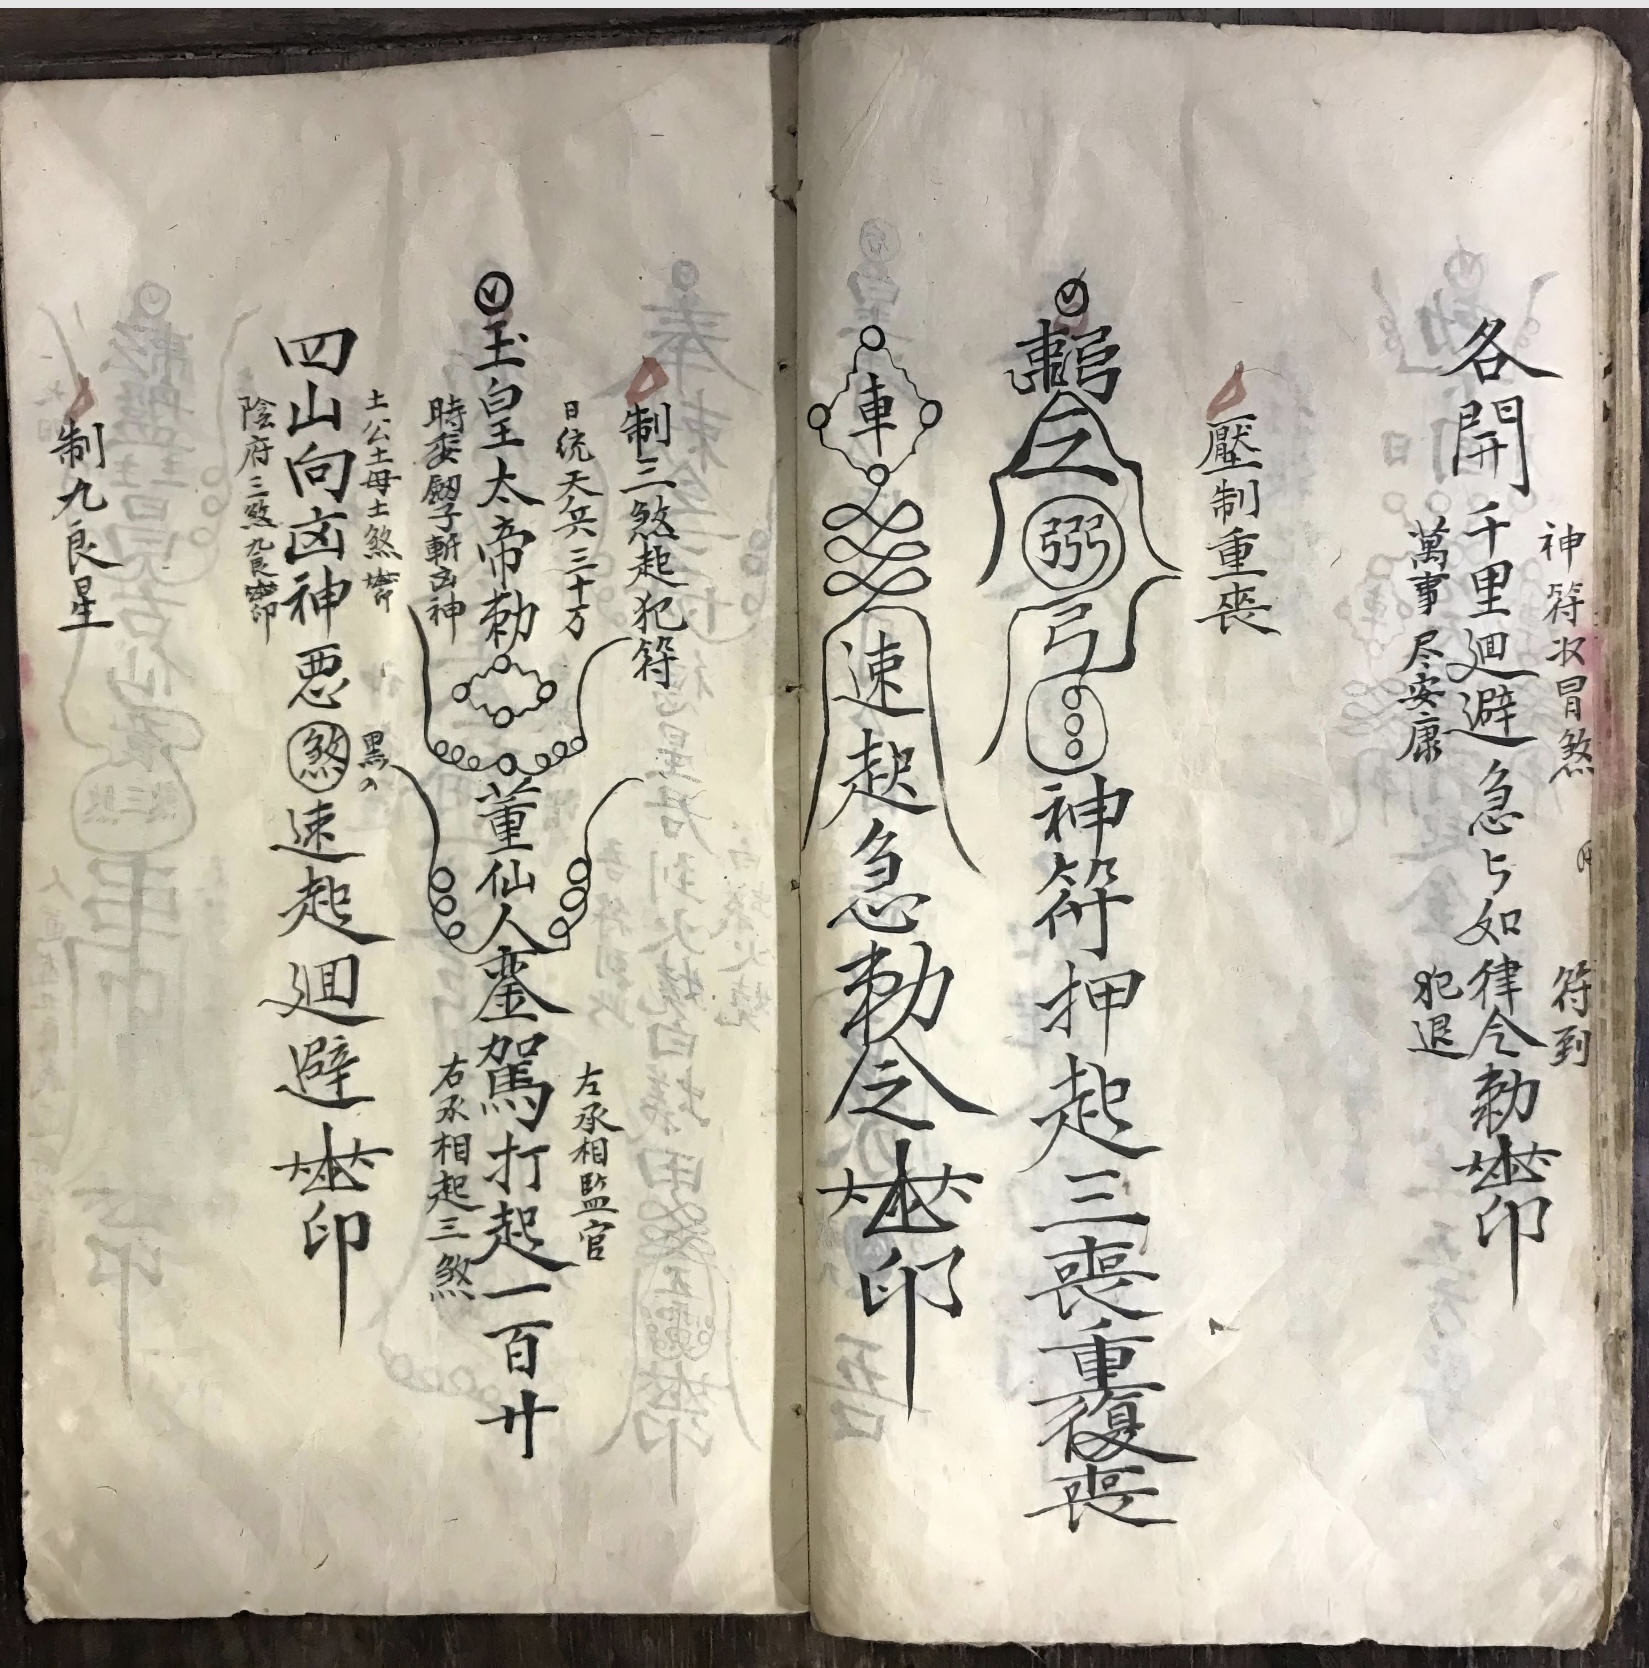 神符收冒煞
符到
各開千里廻避急々如律令勅
印
萬事尽安康
犯退
壓制重喪
弜
弓
神符押起三喪重復喪
車
速起急勅令
印
制三煞起犯符
日統天兵三十万
左承相監官
玉皇太帝勅
董仙人鑾駕打起一百廿
時委劔子斬凶神
右承相起三煞
土公土母土煞
四山向凶神悪煞速起廻避
印
陰府三煞九良
制九良星